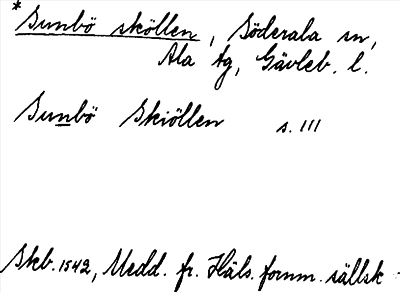 *Sunbö sköllen, Söderala sn,
Ala tg, Gävleb. l.
Sunbö Skiöllen s. 111
Skb. 1542, Medd. fr. Häls. fornm. sällsk.